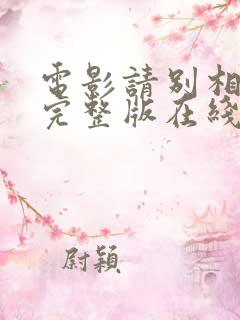 電影請別相
完整版在綫
尉穎